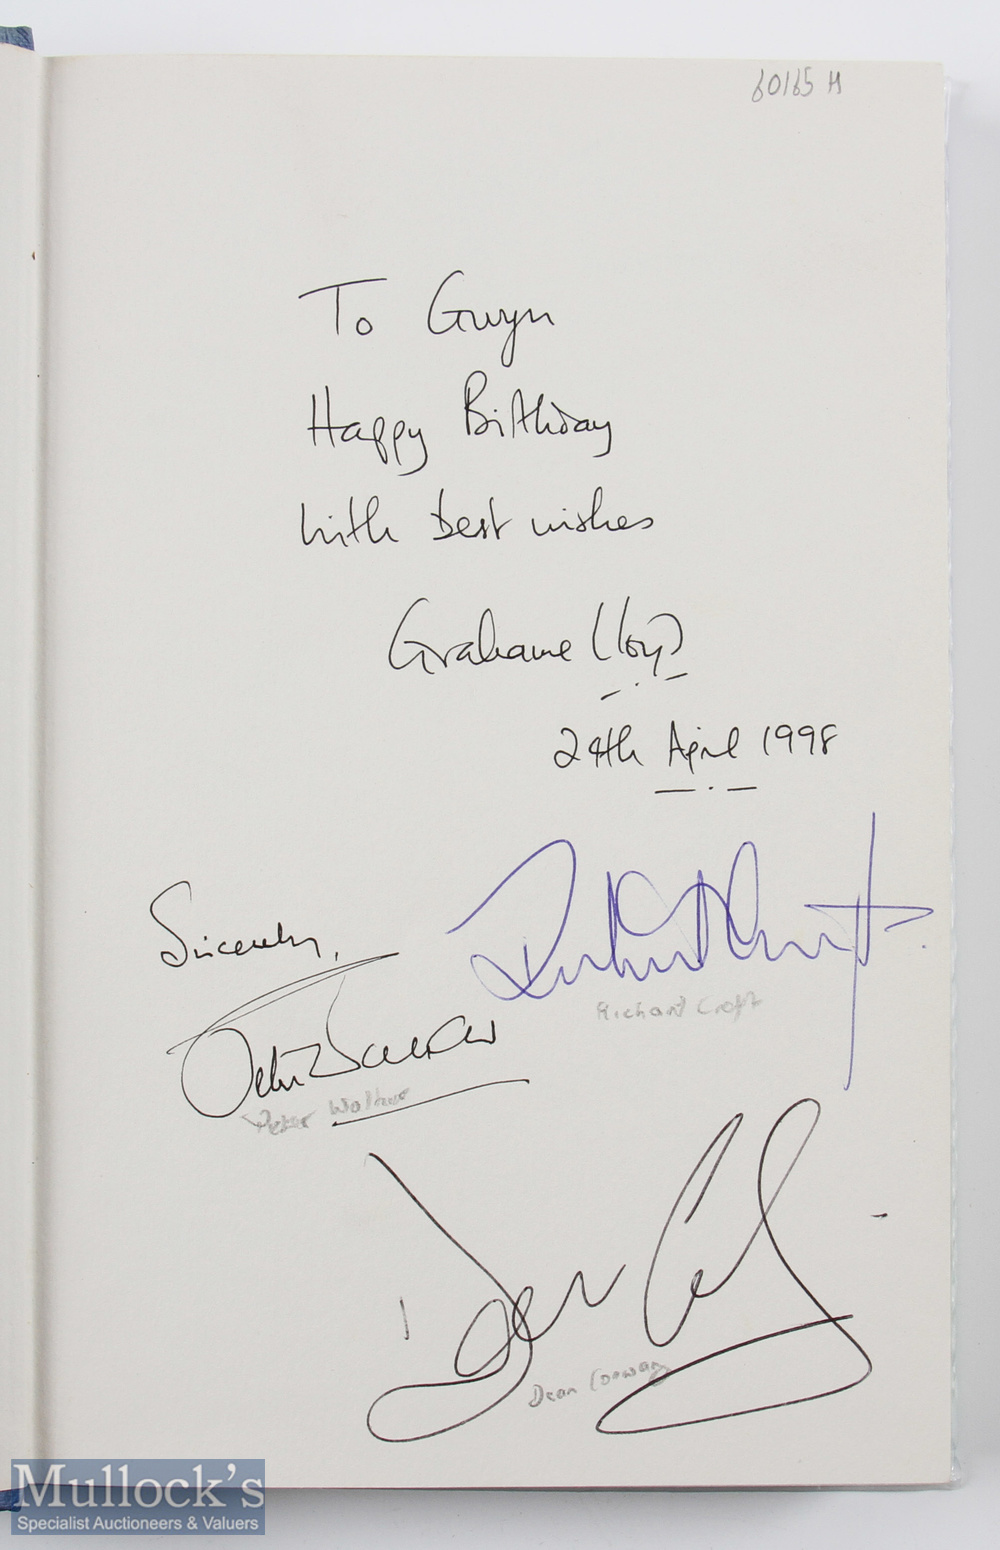 60165 H
To Gwyn
Happy Birthday
with best wishes
Grahame Lloyd
24th April 1998
Sincerely,
Peter Walker
Richard Croft
Peter Walker
Dean Conway
Mullock's
Specialist Auctioneers & Valuers